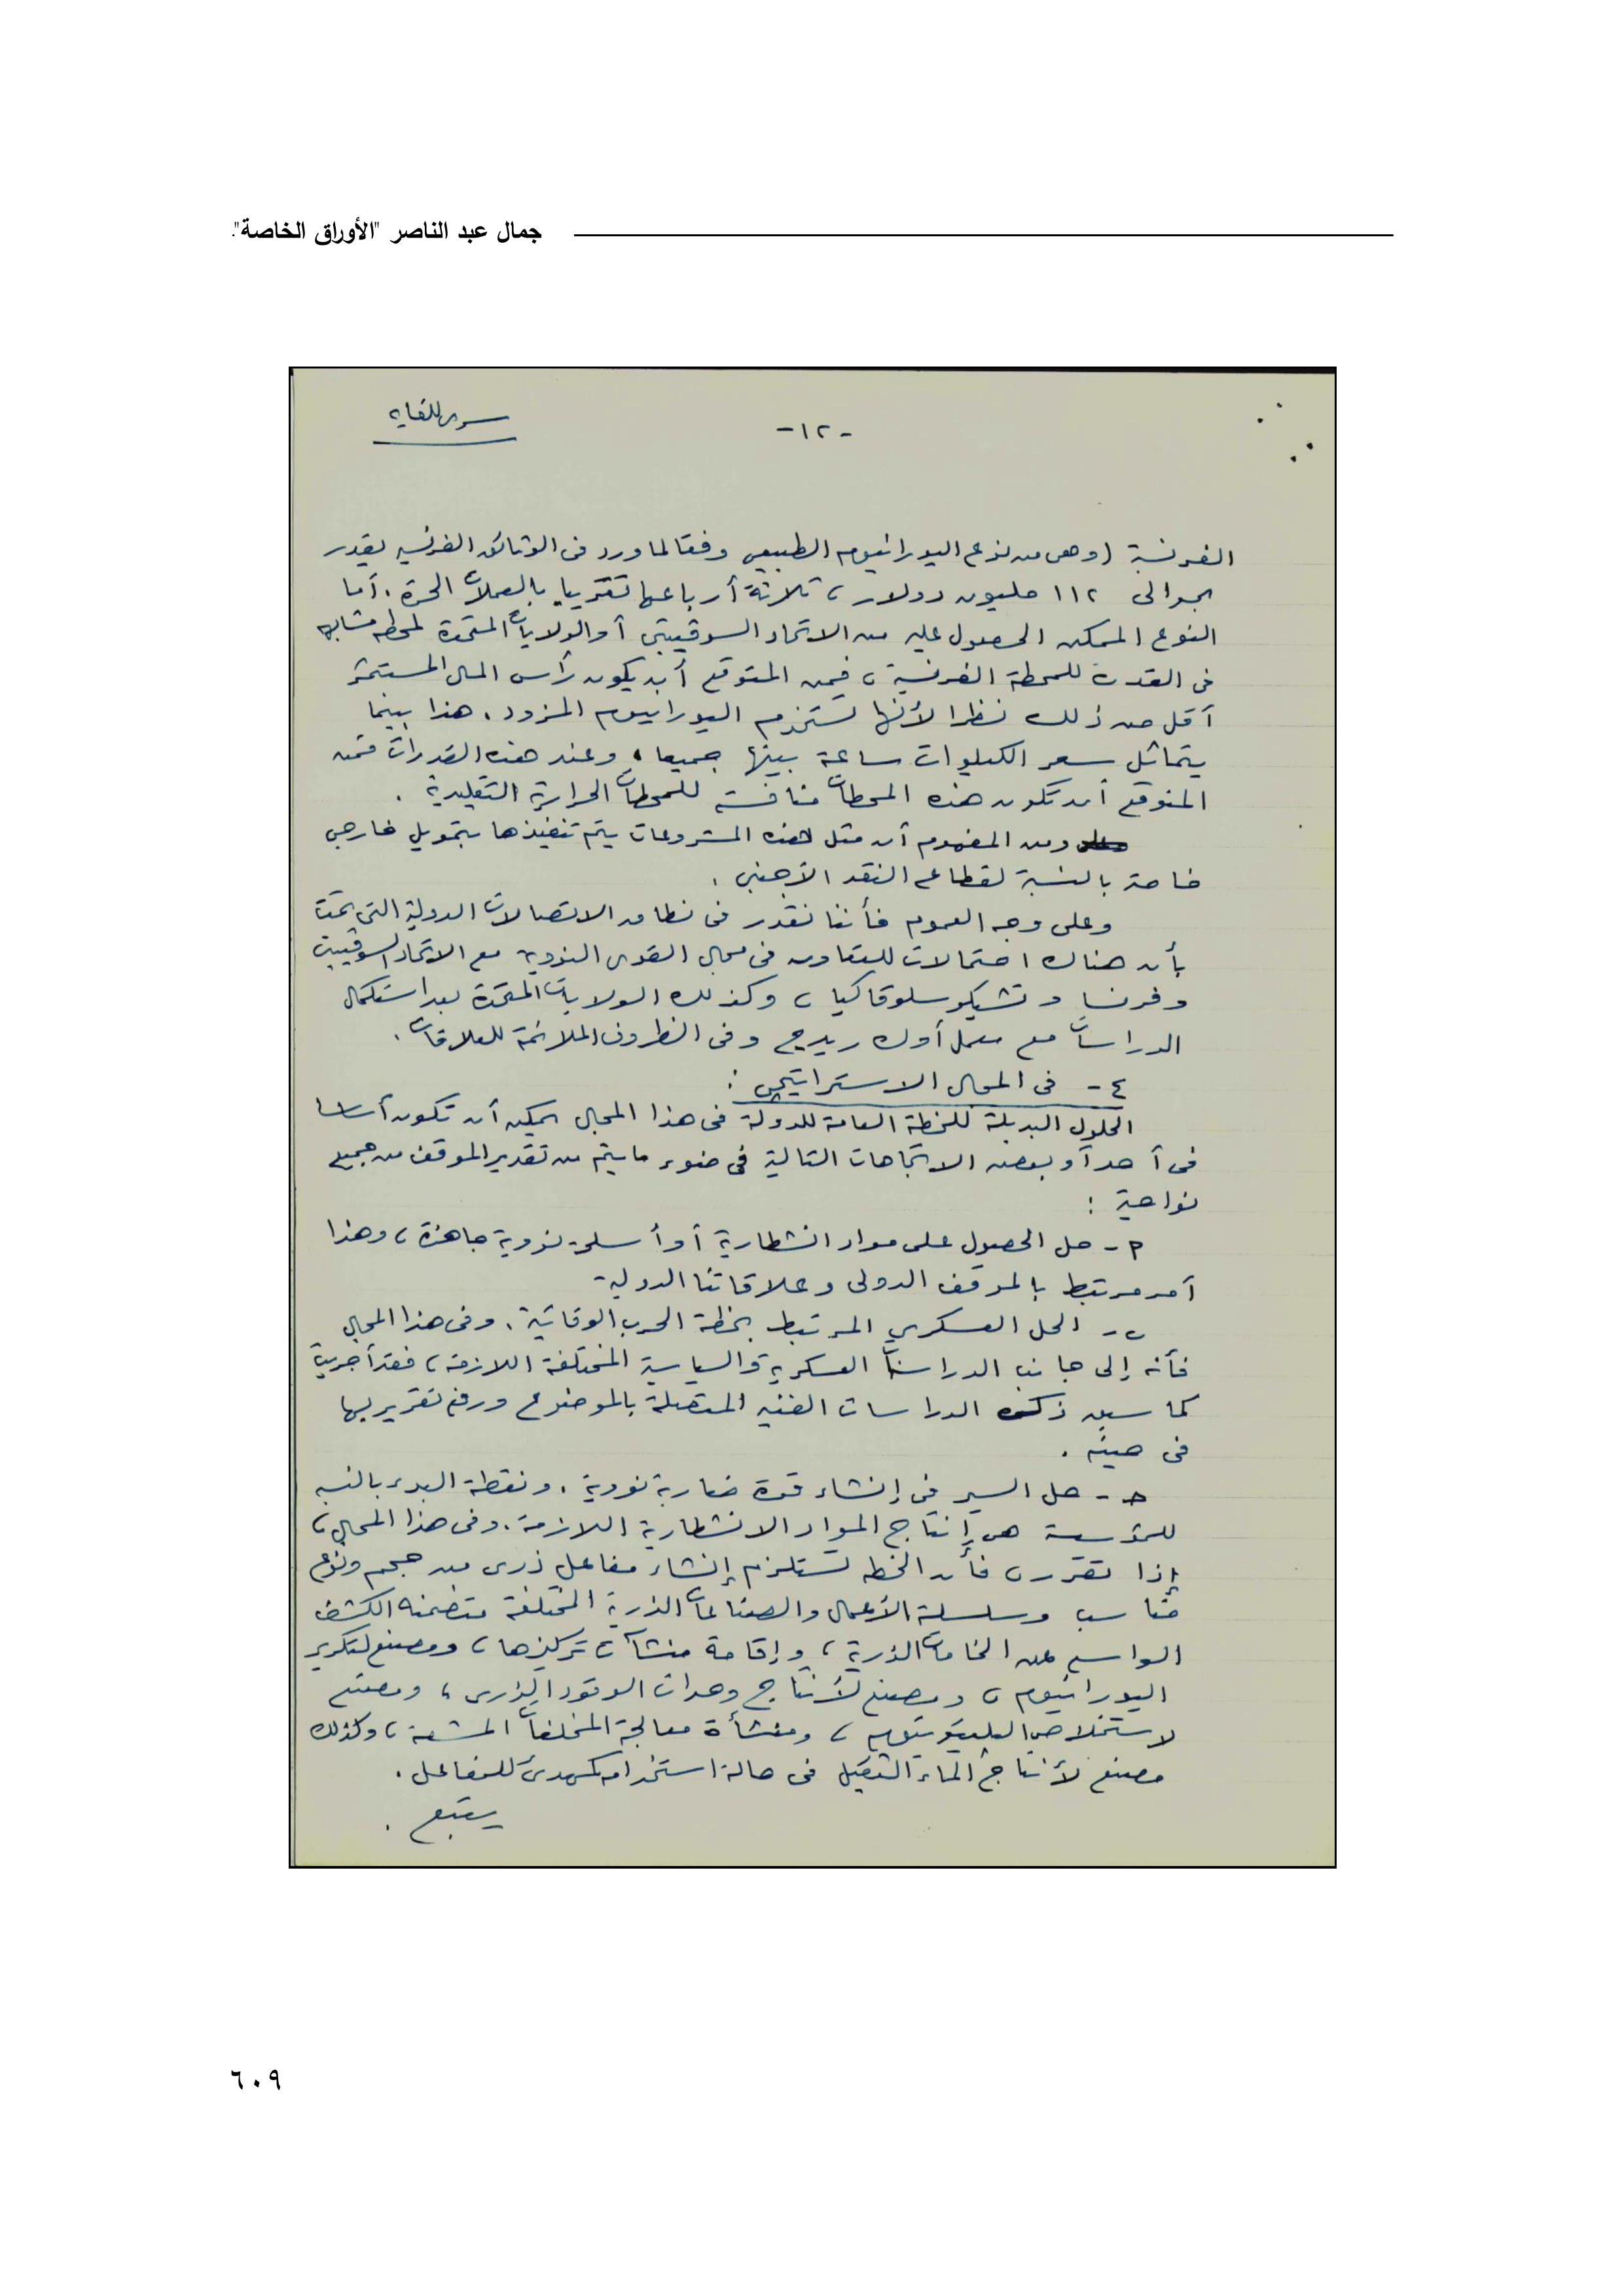 جمال عبد الناصر "الأوراق الخاصة".
سرى للغاية
-١٢-
الفرنسية (وهى من نوع اليورانيوم الطبيعى وفقا لما ورد فى الوثائق الفرنسيه يقدر
بحوالى ١١٢ مليون دولار، ثلاثة أرباعها تقريبا بالعملات الحرة. أما
النوع الممكن الحصول عليه من الاتحاد السوڤييتى أو الولايات المتحدة لمحطه مشابهه
فى القدرة للمحطة الفرنسية، فمن المتوقع أن يكون رأس المال المستثمر
أقل من ذلك نظرا لأنها تستخدم اليورانيوم المزود. هذا بينما
يتماثل سعر الكيلووات ساعة بينها جميعا، وعند هذه القدرات فمن
المتوقع أن تكون هذه المحطات منافسة للمحطات الحرارية التقليدية.
ومن المفهوم أن مثل هذه المشروعات يتم تنفيذها بتمويل خارجى
خاصة بالنسبة لقطاع النقد الأجنبى.
وعلى وجه العموم فأننا نقدر فى نطاق الاتصالات الدولية التى تمت
بأن هناك احتمالات للتعاون فى مجال القوى النووية مع الاتحاد السوڤييتى
وفرنسا وتشيكوسلوفاكيا، وكذلك الولايات المتحدة بعد استكمال
الدراسات مع معمل أوك ريدج وفى الظروف الملائمة للعلاقات.
٤- فى المجال الاستراتيجى:
الحلول البديلة للخطة العامة للدولة فى هذا المجال يمكن أن تكون أساسا
فى أحد أو بعض الاتجاهات التالية فى ضوء ما يتم من تقدير الموقف من جميع
نواحية:
أ- حل الحصول على مواد انشطارية أو أسلحة نووية جاهزة، وهذا
أمر مرتبط بالموقف الدولى وعلاقاتنا الدولية-
ب- الحل العسكري المرتبط بخطة الحرب الوقائية. وفى هذا المجال
فأنه إلى جانب الدراسات العسكرية والسياسية المختلفة اللازمة، فقد أجريت
كما سبق ذكره الدراسات الفنيه المتصلة بالموضوع ورفع تقرير بها
فى حينه.
حـ- حل السير فى إنشاء قوة ضاربة نووية. ونقطة البدء بالنسبه
للمؤسسة هى إنتاج المواد الانشطارية اللازمة. وفى هذا المجال،
إذا تقرر، فأن الخطه تستلزم إنشاء مفاعل ذرى من حجم ونوع
مناسب وسلسلة الأعمال والصناعات الذرية المختلفة متضمنه الكشف
الواسع عن الخامات الذرية، وإقامة منشآت تركيزها، ومصنع لتكرير
اليورانيوم، ومصنع لأنتاج وحدات الوقود الذرى، ومصنع
لاستخلاص البليوتونيوم، ومنشأة معالجة المخلفات المشعة، وكذلك
مصنع لأنتاج الماء الثقيل فى حالة استخدامه كمهدئ للمفاعل.
يتبع.
٦٠٩